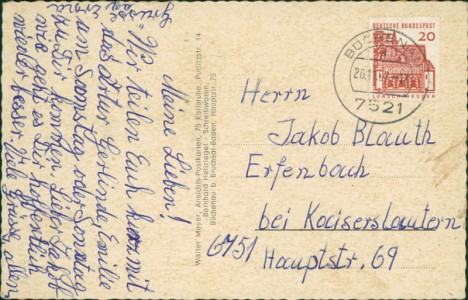 Meine Lieben!
Wir teilen Euch hiermit
das Artur Gerlinde, Emilie
am Samstag oder Sonntag
zu Dir kommen. Lieber Jakob
wie geht es Dir hoffentlich
wieder besser. Viele Grüße allen
Grüße
an Erna
Walter Meyer, Ansichts-Postkarten, 75 Karlsruhe, 14
Bernhard Hellriegel - Schreibwaren,
Büchenau b. Bruchsal-Baden, Hauptstr. 75
DEUTSCHE BUNDESPOST
20
LORSCH/HESSEN
BÜCHENAU
20.1
7521
Herrn
Jakob Blauth
Erfenbach
bei Kaiserslautern
6751
Hauptstr. 69